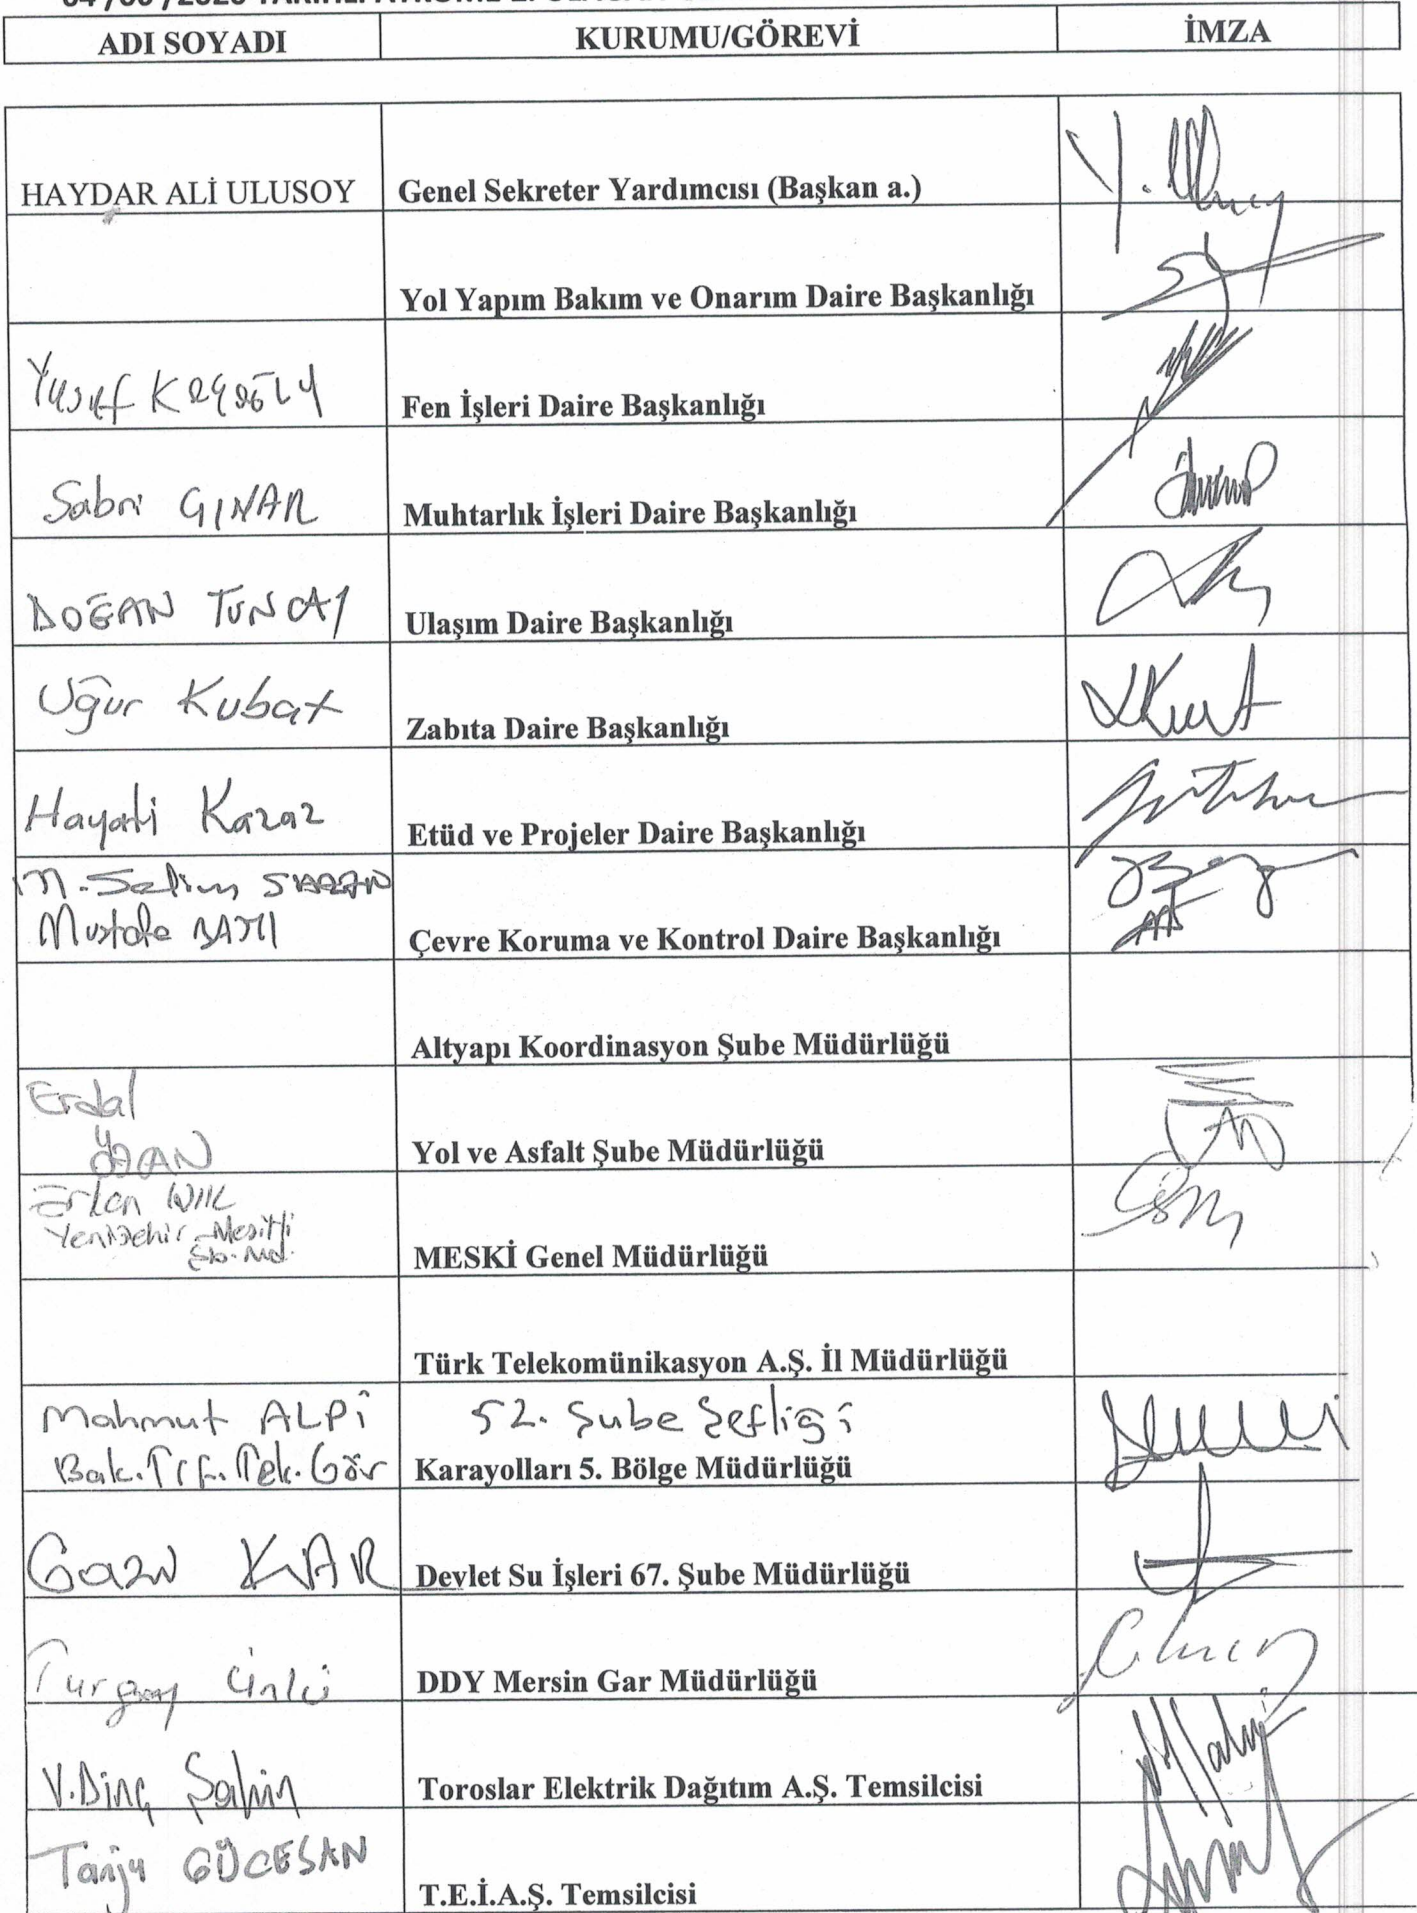 ADI SOYADI KURUMU/GÖREVİ İMZA
HAYDAR ALİ ULUSOY Genel Sekreter Yardımcısı (Başkan a.)
Yol Yapım Bakım ve Onarım Daire Başkanlığı
Yusuf Fen İşleri Daire Başkanlığı
Sabri Muhtarlık İşleri Daire Başkanlığı
DOĞAN TUNCAY Ulaşım Daire Başkanlığı
Uğur Kubat Zabıta Daire Başkanlığı
Hayati Kazaz Etüd ve Projeler Daire Başkanlığı
M. Selim
Mustafa Çevre Koruma ve Kontrol Daire Başkanlığı
Altyapı Koordinasyon Şube Müdürlüğü
Erdal
Yol ve Asfalt Şube Müdürlüğü
Yenişehir-Mezitli
Şb. Md.
MESKİ Genel Müdürlüğü
Türk Telekomünikasyon A.Ş. İl Müdürlüğü
Mahmut ALPİ 52. Şube Şefliği
Bak. Trf. Tek. Gör Karayolları 5. Bölge Müdürlüğü
Devlet Su İşleri 67. Şube Müdürlüğü
Turgay Ünlü DDY Mersin Gar Müdürlüğü
V. Dinç Şahin Toroslar Elektrik Dağıtım A.Ş. Temsilcisi
Tanju GÜCESAN
T.E.İ.A.Ş. Temsilcisi